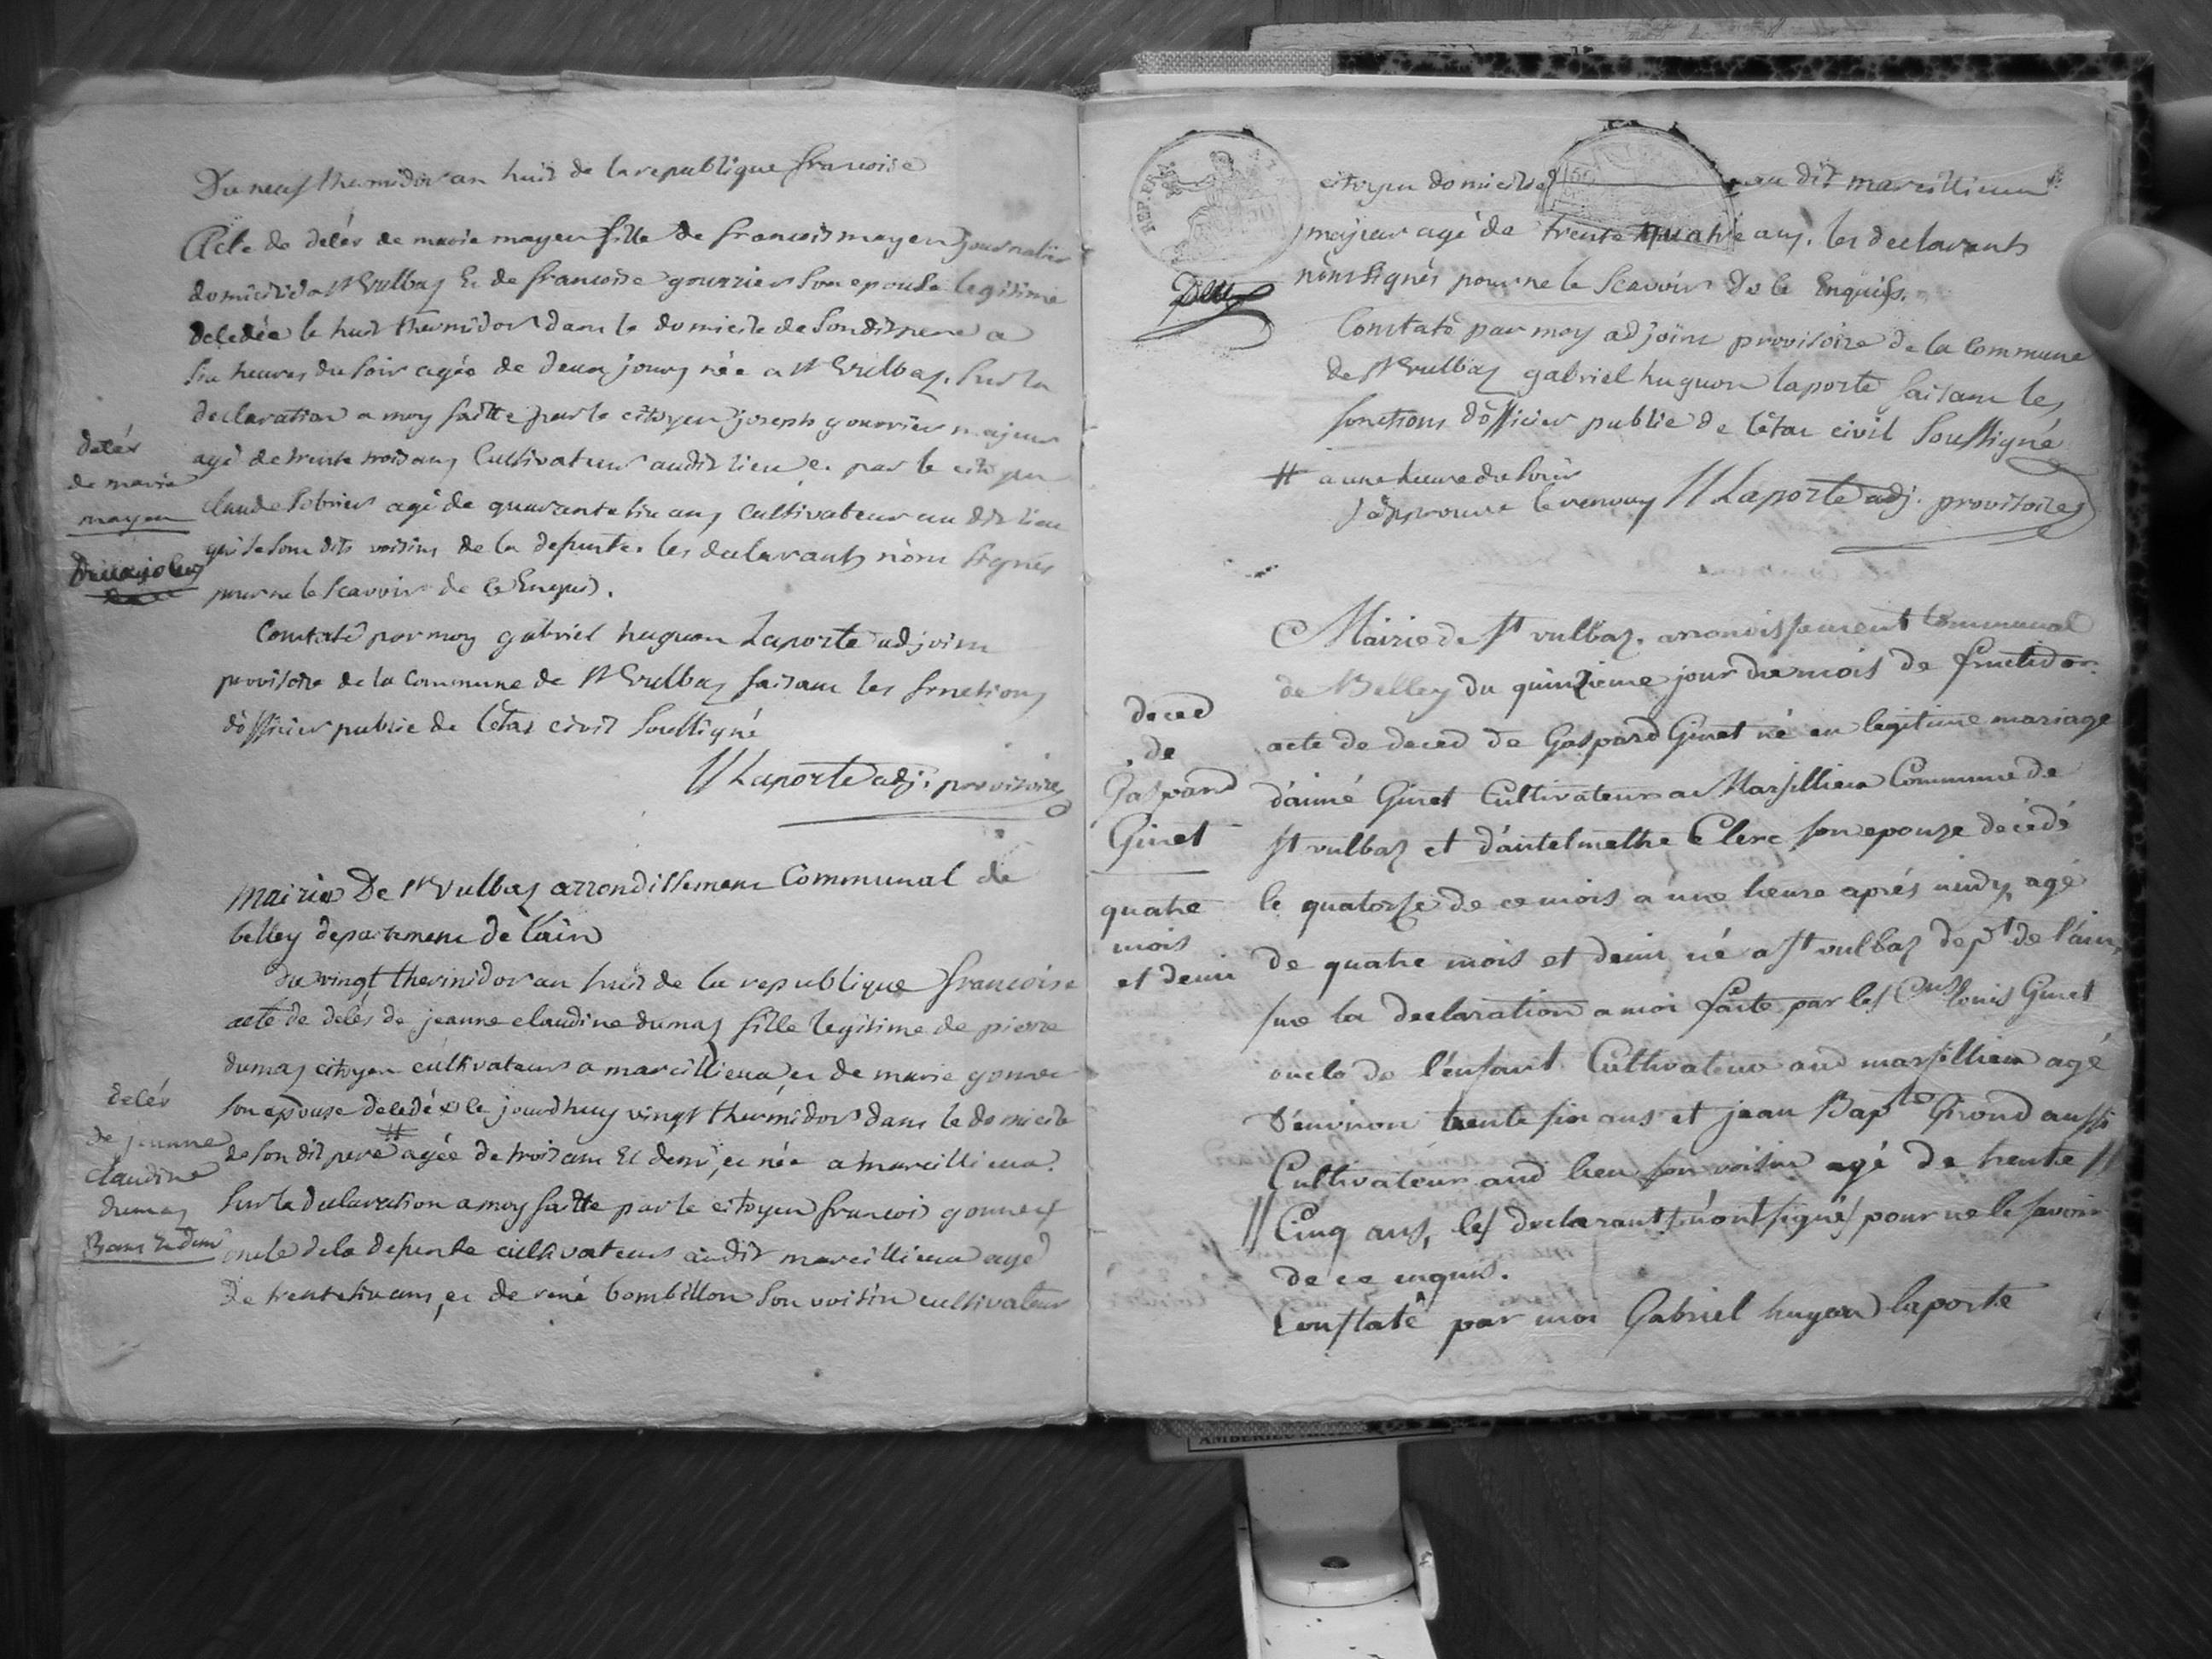 Du neuf thermidor an huit de la republique francoise
Acte de décés de marie moyen fille de francois moyen journalier
domicilié a St Vulbaz Et de francoise gourrier son epouse legitime
décédée le huit thermidor dans le domicile de son dit pere a
six heures du soir agée de deux jours née a St Vulbaz. Sur la
declaration a moy faitte par le citoyen joseph gourrier majeur
agé de trente trois ans Cultivateur au dit lieu et par le citoyen
claude agé de quarante six ans cultivateur au dit lieu
qui se sont dits voisins de la defunte. les declarants n'ont signés
pour ne le scavoir de ce Enquis.
Constaté par moy gabriel huguon Laporte adjoint
provisoire de la Commune de St Vulbaz faisant les fonctions
d'officier public de l'état civil Soussigné
Laporte adj. provisoire
décés
de marie
moyen
Deux jours
Mairie De St Vulbaz arrondissement Communal de
belley departement de l'ain
du vingt thermidor an huit de la republique francoise
acte de décés de jeanne claudine dumas fille legitime de pierre
dumas citoyen cultivateur a marcillieux et de marie gonnet
son epouse décédée le jourdhuy vingt thermidor dans le domicile
de son dit pere # agée de trois ans Et demi, et née a marcillieux.
Sur la declaration a moy faitte par le citoyen francois gonnet
oncle de la defunte cultivateur au dit marcillieux agé
de trente six ans, et de rené bombillon son voisin cultivateur
décés
de jeanne
claudine
dumas
3 ans Et demi
REP. FRA.
citoyen domicilié au dit marcillieux
majeur agé de trente quatre ans. les declarants
n'ont signés pour ne le scavoir De ce Enquis.
Constaté par moy adjoint provisoire de la Commune
de St Vulbaz gabriel huguon laporte faisant les
fonctions d'officier public de l'état civil Soussigné
# a une heure du soir
j'approuve le renvoy Laporte adj. provisoire
Mairie de St vulbaz. arrondissement Communal
de Belley du quinzieme jour du mois de fructidor
acte de déced de Gaspard Ginet né en legitime mariage
d'aimé Ginet Cultivateur a Marsillieux Commune de
St vulbaz et d'antelmethe Clerc son epouze décédé
le quatorze de ce mois a une heure aprés midy, agé
de quatre mois et demi né a St vulbaz dept de l'ain,
sur la declaration a moi faite par les Cens louis Ginet
oncle de l'enfant Cultivateur aud marsillieux agé
D'environ trente six ans et jean Bapte Girond aussi
Cultivateur aud lieu son voisin agé de trente //
// Cinq ans, les declarants n'ont signés pour ne le savoir
de ce enquis.
Constaté par moi Gabriel hugon laporte
deced
de
Gaspard
Ginet
quatre
mois
et demi